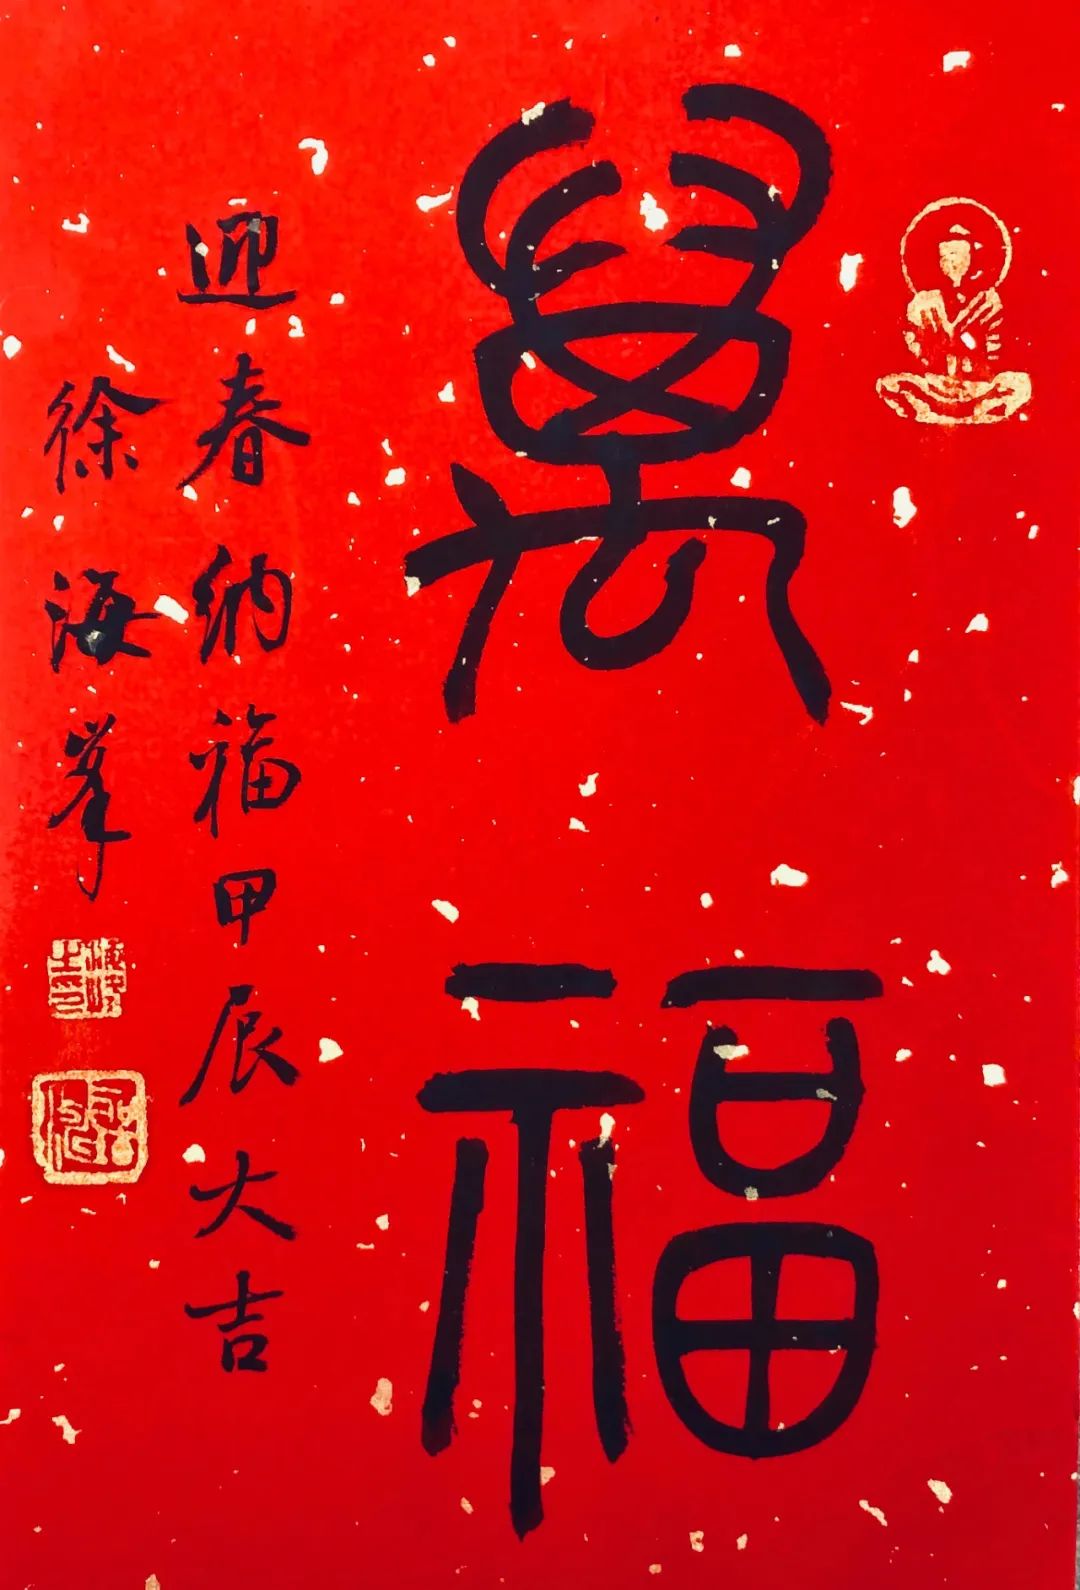 萬福
迎春納福甲辰大吉
徐海峯